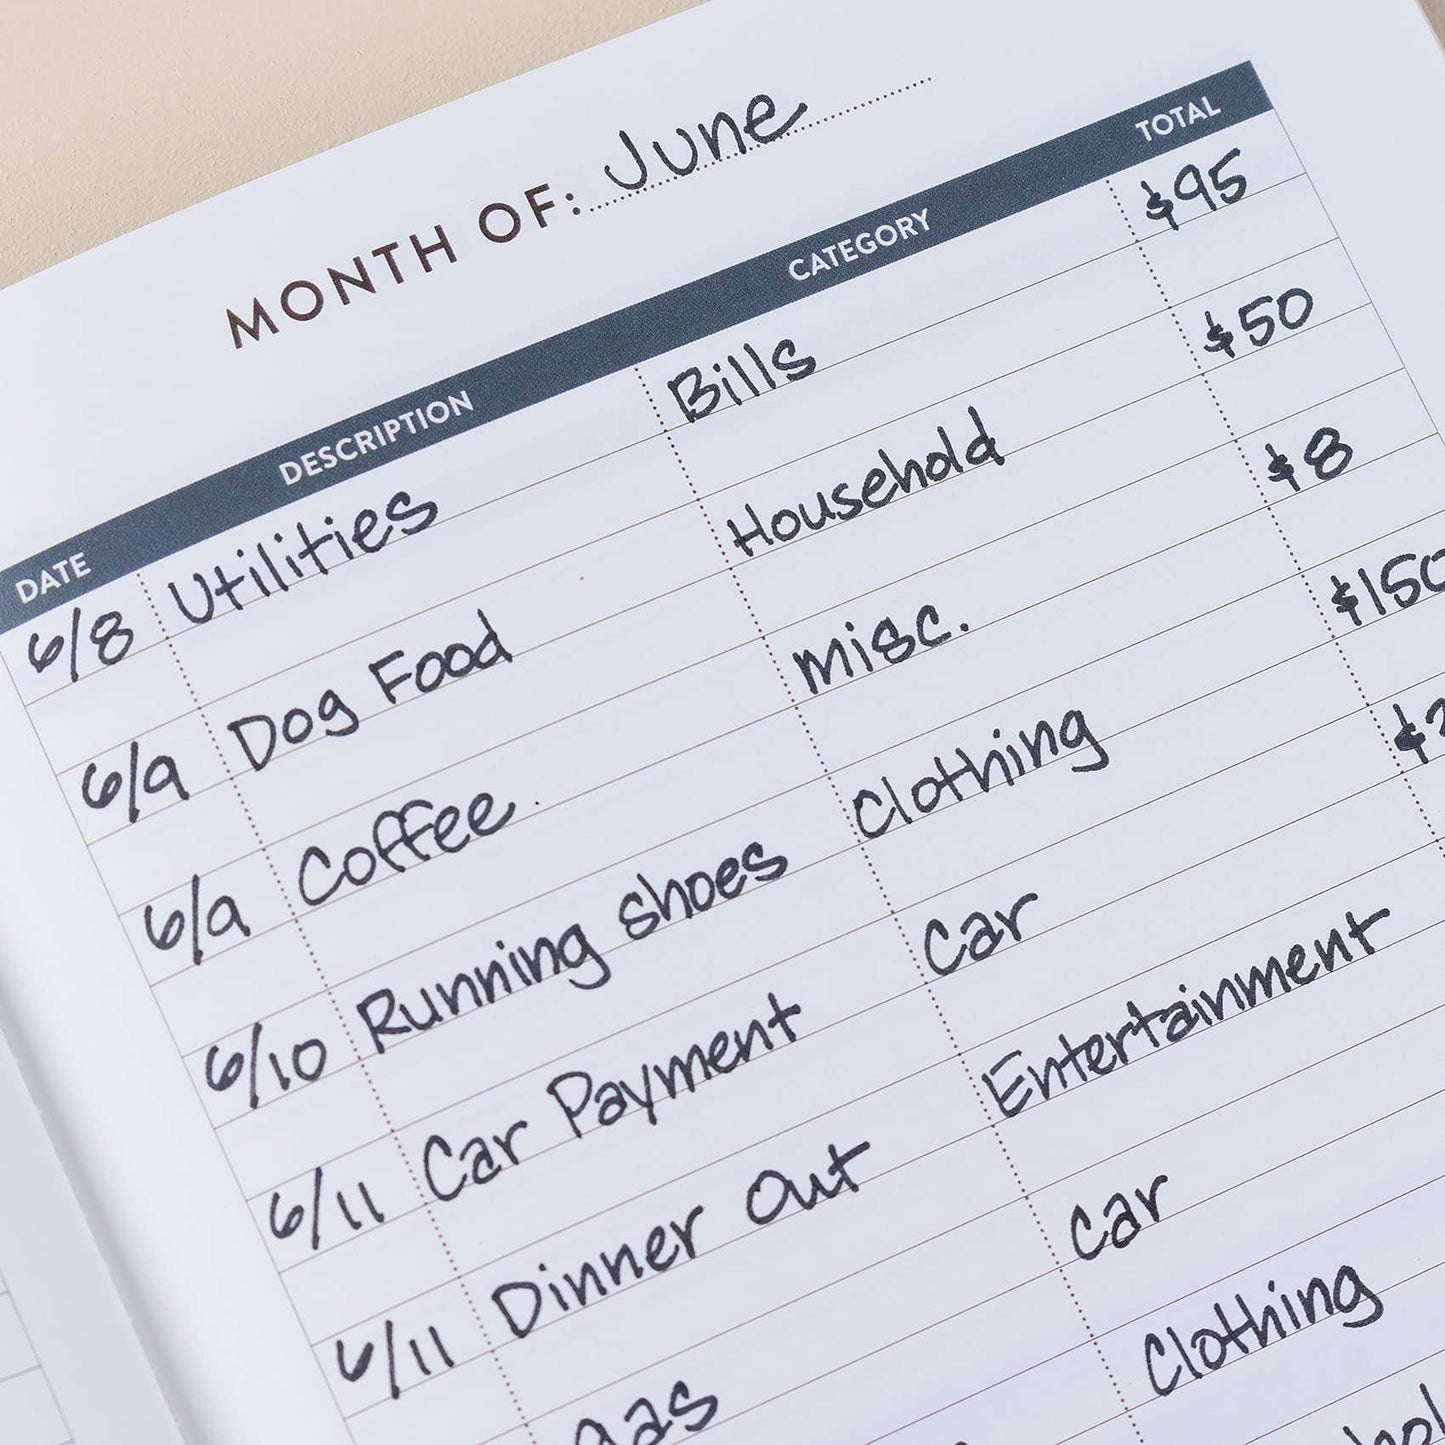 MONTH OF: June
DATE DESCRIPTION CATEGORY TOTAL
6/8 Utilities Bills $95
6/9 Dog Food Household $50
6/9 Coffee misc. $8
6/10 Running shoes Clothing $150
6/11 Car Payment Car
6/11 Dinner Out Entertainment
gas Car
Clothing